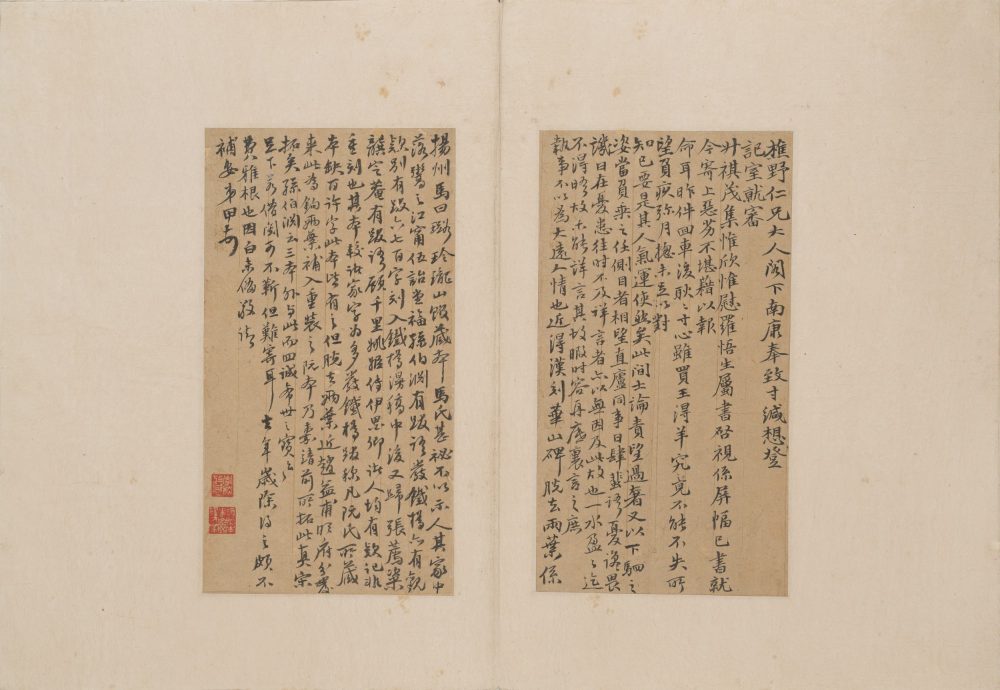 樵野仁兄大人閣下南康奉致寸緘想登
記室就審
升祺茂集惟欣惟慰羅悟生屬書啓視係屏幅已書就
今寄上惡劣不堪藉以報
命耳昨伴回車後耿耿寸心雖買王得羊究竟不能不失所
望負疚弥月摠未足以對
知己要是其人氣運使然矣此間士論責望過奢又以下駟之
姿當負乘之任側目者相望直廬同事日肆蜚語憂讒畏
譏日在憂患往時不及詳言者亦以無因及此故也一水盈盈迄
不得晤故未能詳言其故暇時容再廬裏言之庶
執事不以為大遠人情也近得漢刻華山碑脫去兩葉係
揚州馬曰璐玲瓏山館藏本馬氏甚祕不以示人其家中
落鬻之江甯伍詒堂福孫伯淵有跋語嚴鐵橋亦有觀
欵別有跋六七百字刻入鐵橋漫稿中後又歸張薦粢
龔定菴有跋語顧千里姚姬傳伊墨卿諸人均有欵記非
重刻也其本較諸家字為多嚴鐵橋跋称凡阮氏所藏
本缺百許字此本皆有之但脫去兩葉近趙益甫明府分囊
來此為鉤兩葉補入重裝之阮本乃嘉靖前所拓此真宋
拓矣孫伯淵云三本外与此而四誠希世之寶之
足下若借閱可不靳但難寄耳去年歲除得之頗不
費八雅根也因白未脩敬請
補安弟甲奇